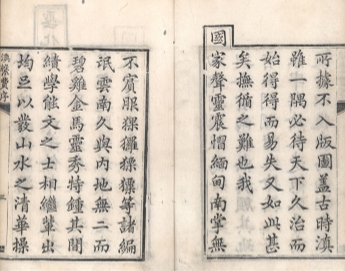 所據不入版圖蓋古時滇
雖一隅必待天下久治而
始得得而易失又如此甚
矣撫循之難也我
國
家聲靈震慴緬甸南掌無
不賓服猓玀猓等諸編
氓雲南久與內地無二而
碧雞金馬靈秀特鍾其閒
績學能文之士相繼輩出
均足以發山水之清華操
滇繫費序